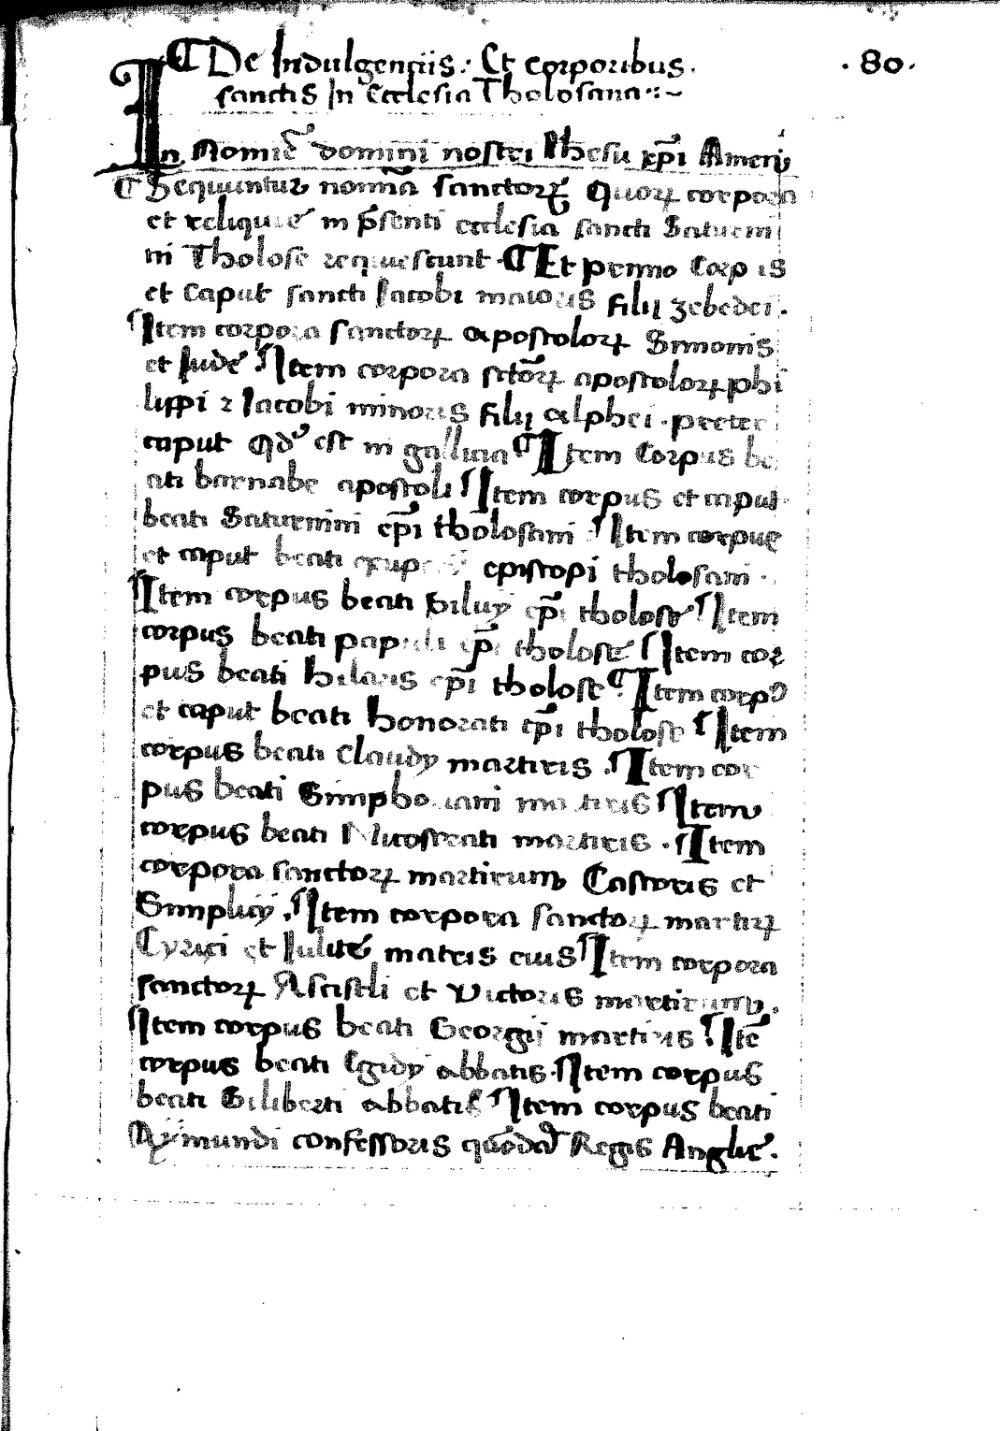 ¶ De Indulgentiis : Et corporibus .
· 80 ·
sanctis In Ecclesia Tholosana
In Nomīe domini nostri Jhesu xp̄i Amen
¶ Sequuntur nomīa sanctoꝝ Quoꝝ corpora
et reliquie in p̄senti ecclesia sancti Saturni
ni Tholose requiescunt · ¶ Et primo Corpus
et caput sancti Jacobi maioris filij zebedei ·
¶ Item corpora sanctoꝝ apostoloꝝ Simonis
et Jude ¶ Item corpora sctōꝝ apostoloꝝ phi
lippi ⁊ Jacobi minoris filij alphei · preter
caput Qd̄ est in gallicia ¶ Item Corpus be
ati barnabe apostoli ¶ Item corpus et caput
beati Saturnini ep̄i tholosani ¶ Item corpus
et caput beati exuperij episcopi tholosani ·
¶ Item corpus beati siluij ep̄i tholose ¶ Item
corpus beati papuli ep̄i tholose ¶ Item cor
pus beati hilaris ep̄i tholose ¶ Item corpꝰ
et caput beati honorati ep̄i tholose ¶ Item
corpus beati Claudy martiris . ¶ Item cor
pus beati Simphoriani martiris ¶ Item
corpus beati Nicostrati martiris · ¶ Item
corpora sanctoꝝ martirum Castoris et
Simplicij . ¶ Item corpora sanctoꝝ martiꝝ
Cyrici et Julite matris eius ¶ Item corpora
sanctoꝝ Asciscli et victoris martirum .
¶ Item corpus beati Georgij martiris ¶ Itē
corpus beati Egidy abbatis · ¶ Item corpus
beati Giliberti abbatis ¶ Item corpus beati
Aymundi confessoris quōdā Regis Anglie .